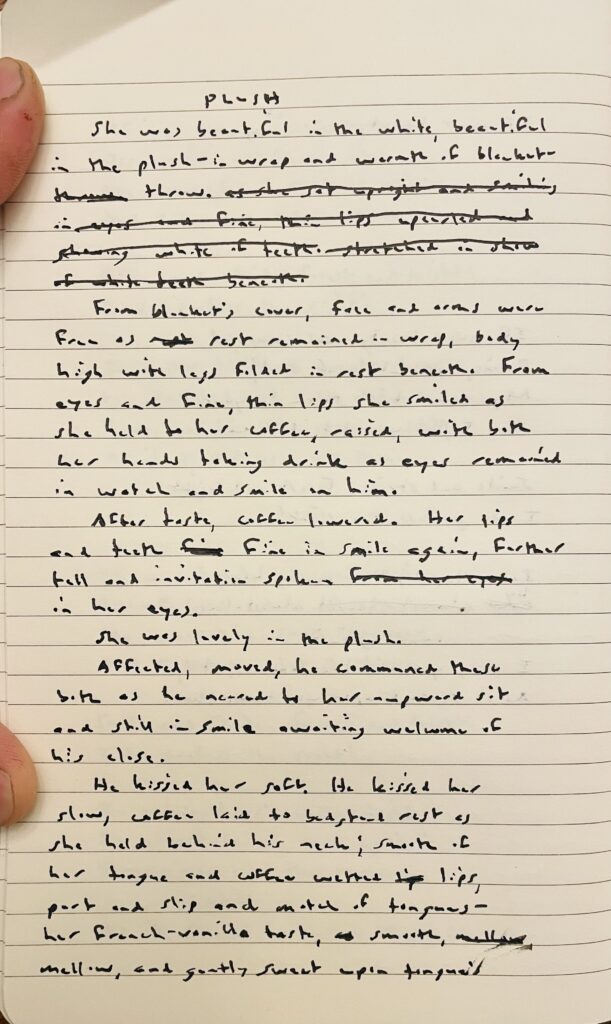 PLUSH
She was beautiful in the white, beautiful
in the plush-in wrap and warmth of blanket-
throw. as she sat upright and smiling
in eyes and fine, thin lips upcurled and
showing white of teeth. stretched in show
of white teeth beneath.
From blanket's cover, face and arms were
free as rest remained in wrap, body
high with legs folded in rest beneath. From
eyes and fine, thin lips she smiled as
she held to her coffee, raised, with both
her hands taking drink as eyes remained
in watch and smile on him.
After taste, coffee lowered. Her lips
and teeth fine in smile again, further
tell and invitation spoken from her eyes
in her eyes.
She was lovely in the plush.
Affected, moved, he commanced these
both as he neared to her upward sit
and still in smile awaiting welcome of
his close.
He kissed her soft. He kissed her
slow, coffee laid to bedstand rest as
she held behind his neck; smooth of
her tongue and coffee wetted lips,
part and slip and match of tongues-
her French-vanilla taste, smooth, mellow
mellow, and gently sweet upon tongue's